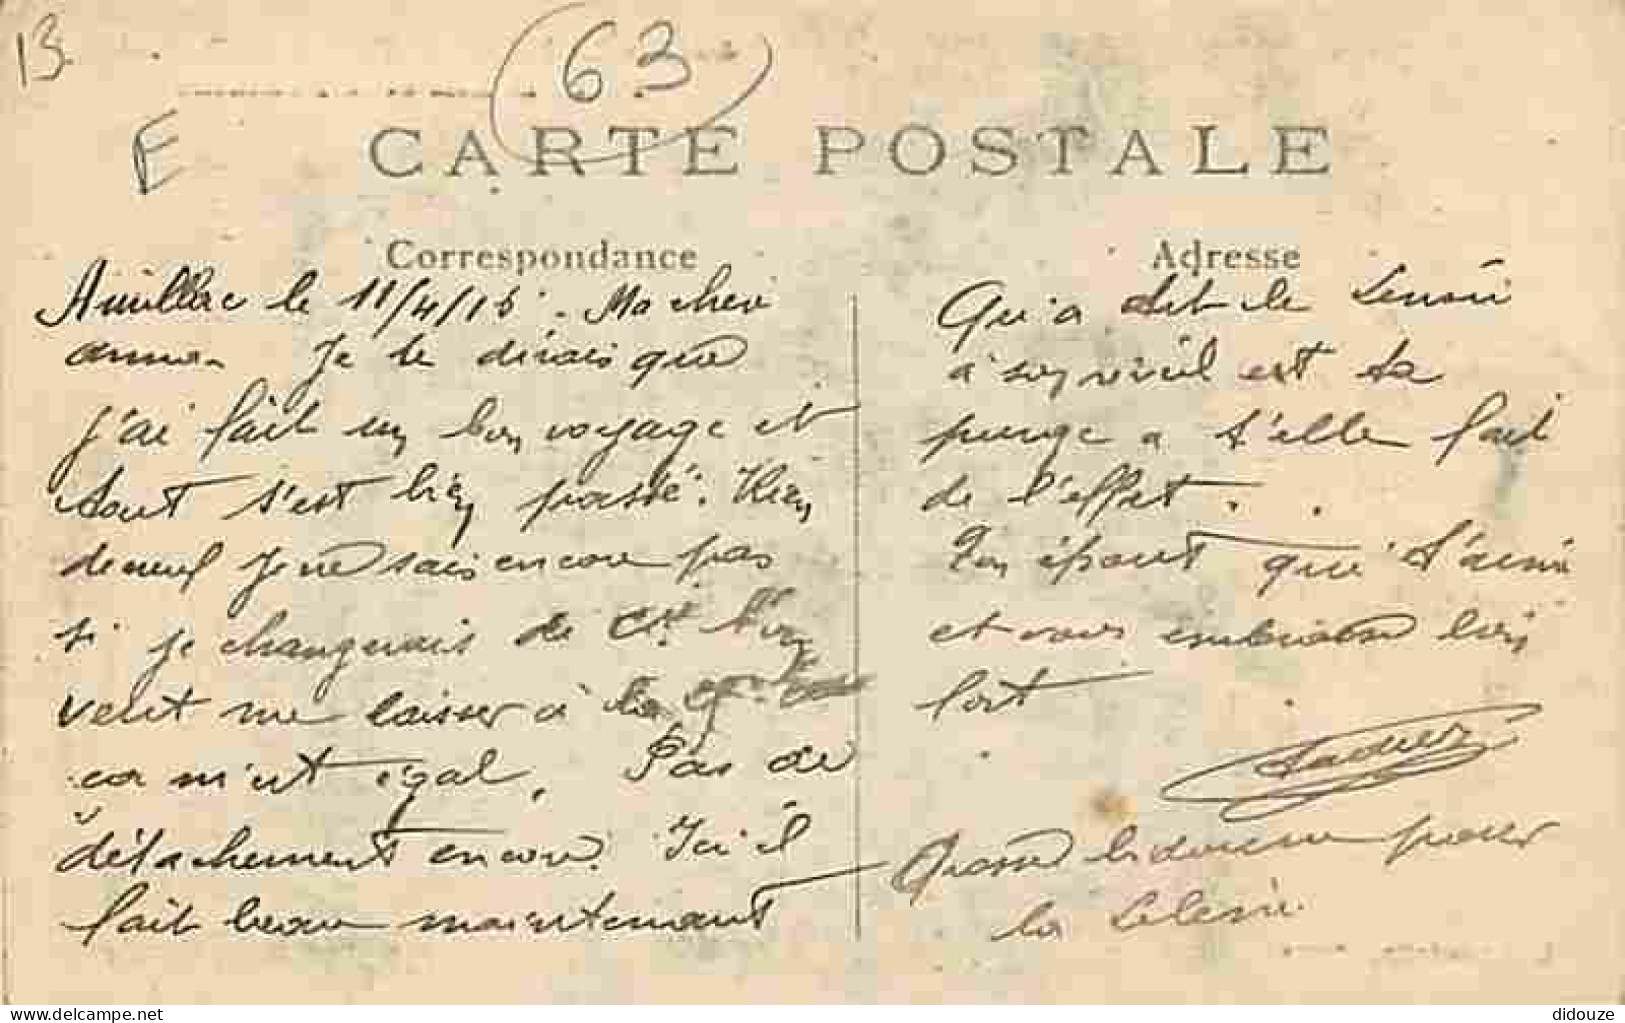 13
63
E
CARTE POSTALE
Correspondance
le 11/4/15. Ma cher
Je te dirais que
j'ai fait un bon voyage et
tout s'est bien passé. Rien
de neuf Je ne sais encore pas
si je changerais de Cie
veut me laisser à la
ca m'est égal. Pas de
détachement encore. Ici il
fait beau maintenant
Adresse
Qu'a dit le
à son est ta
purge a t'elle fait
de l'effet.
Ton époux qui t'aime
et vous embrasse bien
fort
la
didouze